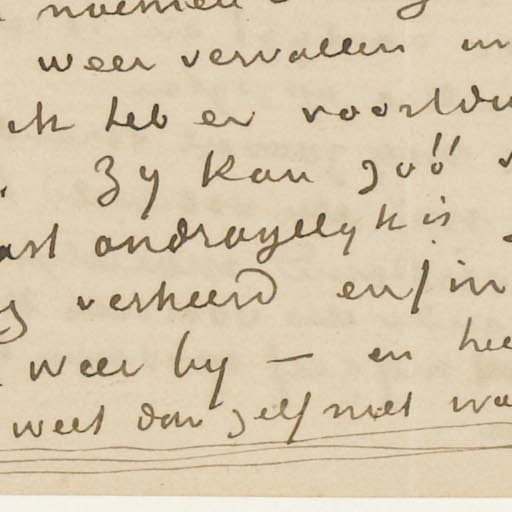 noemen
weer vervallen
ik heb er
Zy kan zoo!!
ondragelyk is
verkeerd en/in
weer by — en
weet dan zelf niet